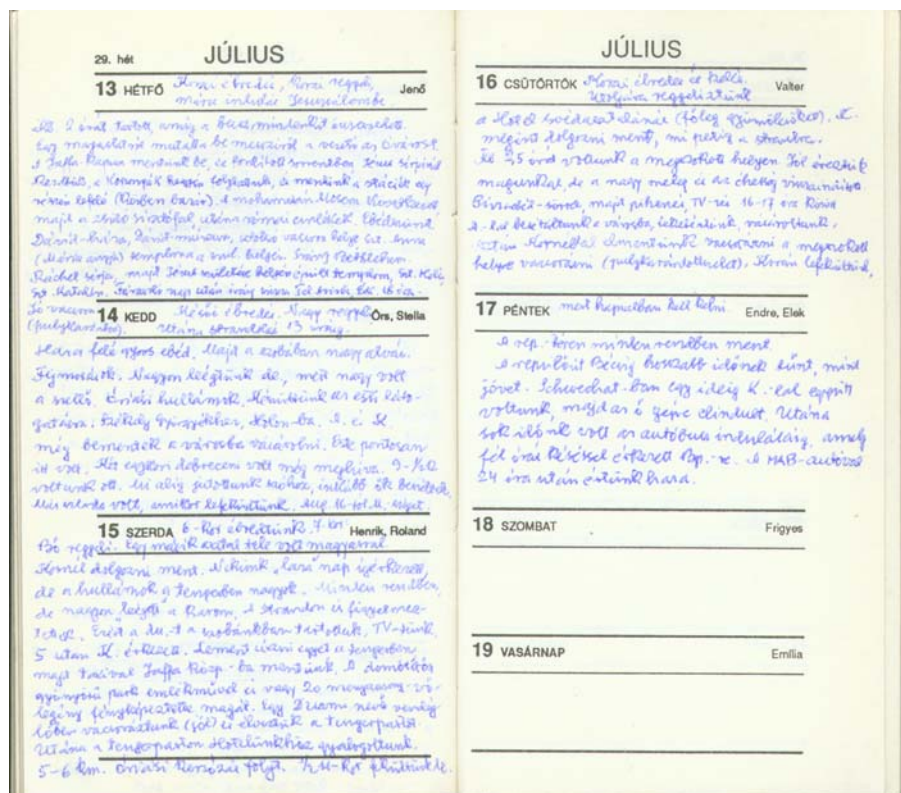 29. hét JÚLIUS
13 HÉTFŐ Korai ébredés, korai reggeli, Jenő
máris indulás Jeruzsálembe.
2 órát tartott, amíg a busz mindenkit
Egy magaslatról mutatta be messziről a várost
A Jaffa kapun mentünk be, és fordított sorrendben, Jézus sírjánál
kezdtük, a folytattuk, és mentünk a stációk egy
részén lefelé (közben bazár). A mohamedán
majd a zsidó siratófal, utána római emlékek.
Dávid-város, Dávid-múzeum, utolsó vacsora helye
(Mária anyja) temploma a szül. helyen. Irány Betlehem.
Ráchel sírja, majd Jézus születése helyén épült templom, Szt.
Szt. Katalin. Fárasztó nap után irány vissza Tel Avivba,
Jó vacsora
(pulykarántott).
14 KEDD Késői ébredés. Nagy reggeli Örs, Stella
Utána strandolás 13 óráig.
Haza felé gyors ebéd. Majd a szobában nagy alvás.
Fejmosások. Nagyon leégtünk de, mert nagy volt
a szellő. Óriási hullámok. az esti láto-
gatásra: Székely Györgyékhez, Holon-ba. A. és K.
még bementek a városba vásárolni. Este pontosan
itt volt. Két egykori debreceni volt még meghíva. 9-1/2 12
voltunk ott. Mi alig jutottunk szóhoz, inkább ők beszéltek.
Már szerda volt, amikor lefeküdtünk.
15 SZERDA 6-kor ébredtünk 7-kor Henrik, Roland
Bő reggeli. Egy másik asztal tele volt magyarral
Kornél dolgozni ment. Nekünk „laza” nap ígérkezett,
de a hullámok a tengerben nagyok. Minden rendben,
de nagyon leégett a karom. A strandon is figyelmez-
tettek. Ezért a du.-t a szobánkban töltöttük, TV-ztünk.
5 után K. érkezett. Lement úszni egyet a tengerben
majd taxival Jaffa közp.-ba mentünk. A dombtetőn
gyönyörű park emlékművel és vagy 20 menyasszony-vő-
legény fényképeztette magát. Egy nevű vendég-
lőben vacsoráztunk (jól) és élveztük a tengerpartot.
Utána a tengerparton Hotelünkhöz gyalogoltunk.
5-6 km. óriási korzózás folyt. 1/2 11-kor feküdtünk le.
JÚLIUS
16 CSÜTÖRTÖK Korai ébredés és Valter
Utoljára reggeliztünk
a Hotel svédasztalánál (főleg gyümölcsöket). K.
megint dolgozni ment, mi pedig a strandra.
25 óráig voltunk a megszokott helyen. Jól éreztük
magunkat, de a nagy meleg és az éhség visszaűzött.
majd pihenés, TV-zés 16-17 óra között
besétáltunk a városba, vásároltunk,
aztán Kornéllal elmentünk vacsorázni a megszokott
helyre vacsorázni (pulykarántottszelet). Korán lefeküdtünk,
17 PÉNTEK mert hajnalban kell kelni. Endre, Elek
A rep.-téren minden rendben ment
A repülőút Bécsig hosszabb időnek tűnt, mint
jövet. Schwechat-ban egy ideig K.-val együtt
voltunk, majd az ő gépe elindult. Utána
sok időnk volt az autóbusz indulásáig, amely
fél órás késéssel érkezett Bp.-re. A MAB-autóval
24 óra után értünk haza.
18 SZOMBAT Frigyes
19 VASÁRNAP Emília